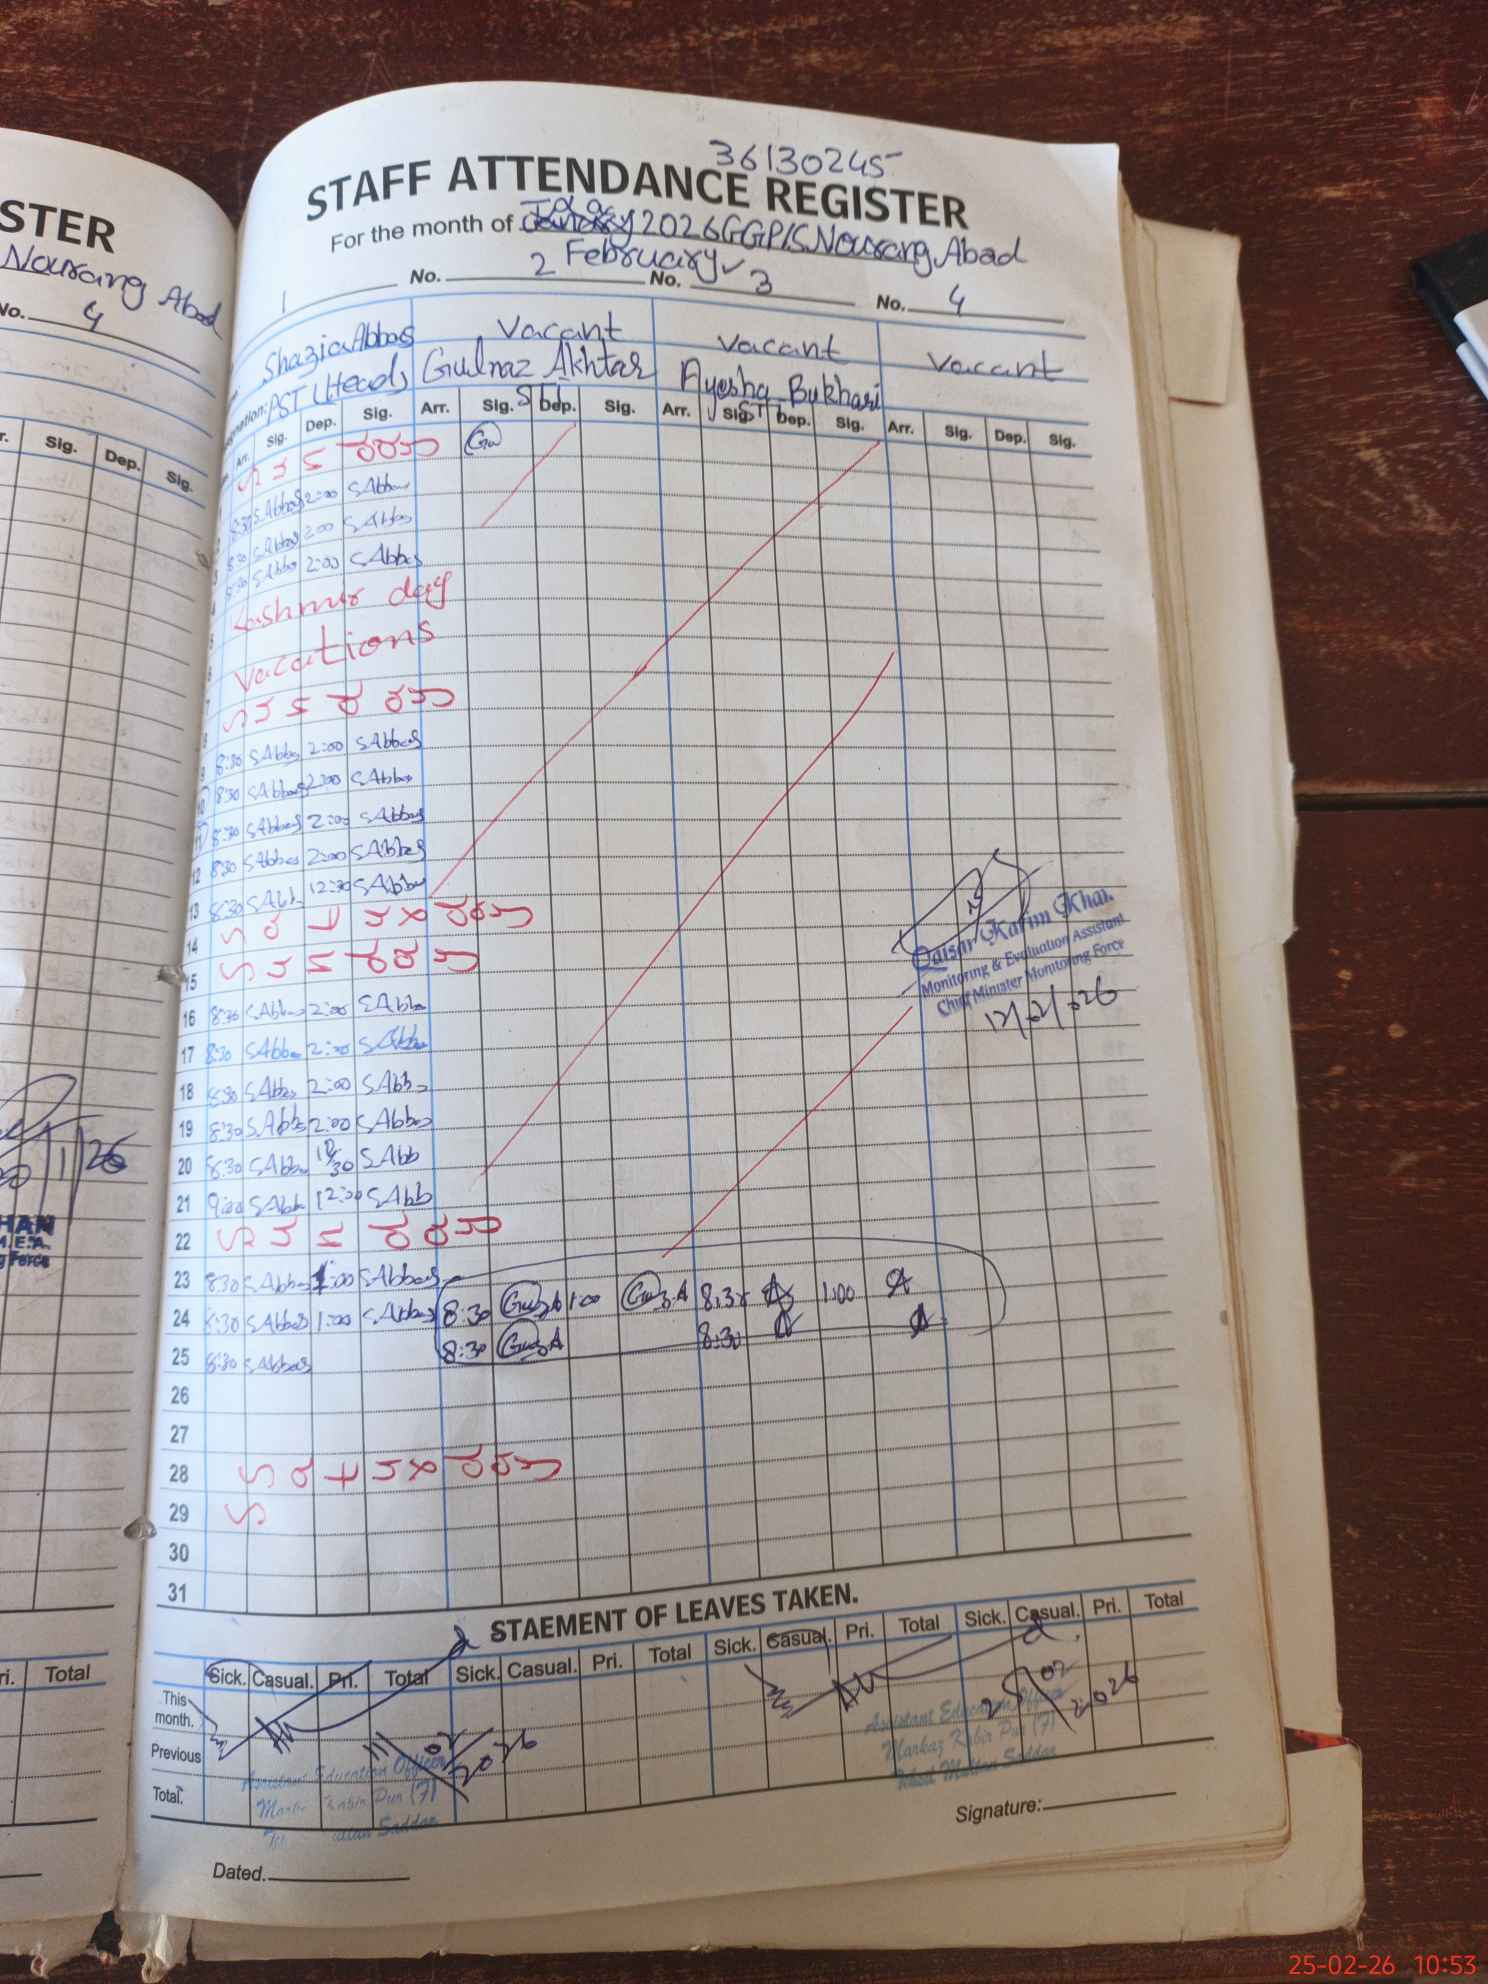 STER
Nourang Abad
No. 4
Sig. Dep. Sig.
36130245
STAFF ATTENDANCE REGISTER
For the month of 2026 GGP/S Nourang Abad
February
1 No. 2 No. 3 No. 4
Shazia Abbas Vacant Vacant Vacant
PST (Head) Gulnaz Akhtar Ayesha Bukhari
STI STI
Arr. Sig. Dep. Sig. Arr. Sig. Dep. Sig. Arr. Sig. Dep. Sig. Arr. Sig. Dep. Sig.
Sunday
8:30 SAbbas 2:00 SAbbas
8:30 SAbbas 2:00 SAbbas
8:30 SAbbas 2:00 SAbbas
Kashmir day
Vacations
Sunday
9 8:30 SAbbas 2:00 SAbbas
10 8:30 SAbbas 2:00 SAbbas
11 8:30 SAbbas 2:00 SAbbas
12 8:30 SAbbas 2:00 SAbbas
13 8:30 SAbb 12:30 SAbbas
14 Saturday
15 Sunday
16 8:30 SAbbas 2:00 SAbbas
17 8:30 SAbbas 2:00 SAbbas
18 8:30 SAbbas 2:00 SAbb
19 8:30 SAbbs 2:00 SAbbas
20 8:30 SAbbas 30 SAbb
21 9:00 SAbb 12:00 SAbb
22 Sunday
23 8:30 SAbbas 1:00 SAbbas
24 8:30 SAbbas 1:00 SAbbas 8:30 1:00 8:30 1:00
25 8:30 SAbbas 8:30 8:30
26
27
28 Saturday
29 S
30
31
Qaisar Karim Khan
Monitoring & Evaluation Assistant
Chief Minister Monitoring Force
12/02/026
1/26
HAN
M.E.A.
g Force
STAEMENT OF LEAVES TAKEN.
Sick. Casual. Pri. Total Sick. Casual. Pri. Total Sick. Casual. Pri. Total Sick. Casual. Pri. Total
This month.
Previous
Total.
11/02/2026
Assistant Education Officer
Kabir Pur (F)
Saddar
25/02/2026
Assistant Education Officer
Markaz Kabir Pur (F)
Multan Saddar
Signature:
Dated.
ri. Total
25-02-26 10:53